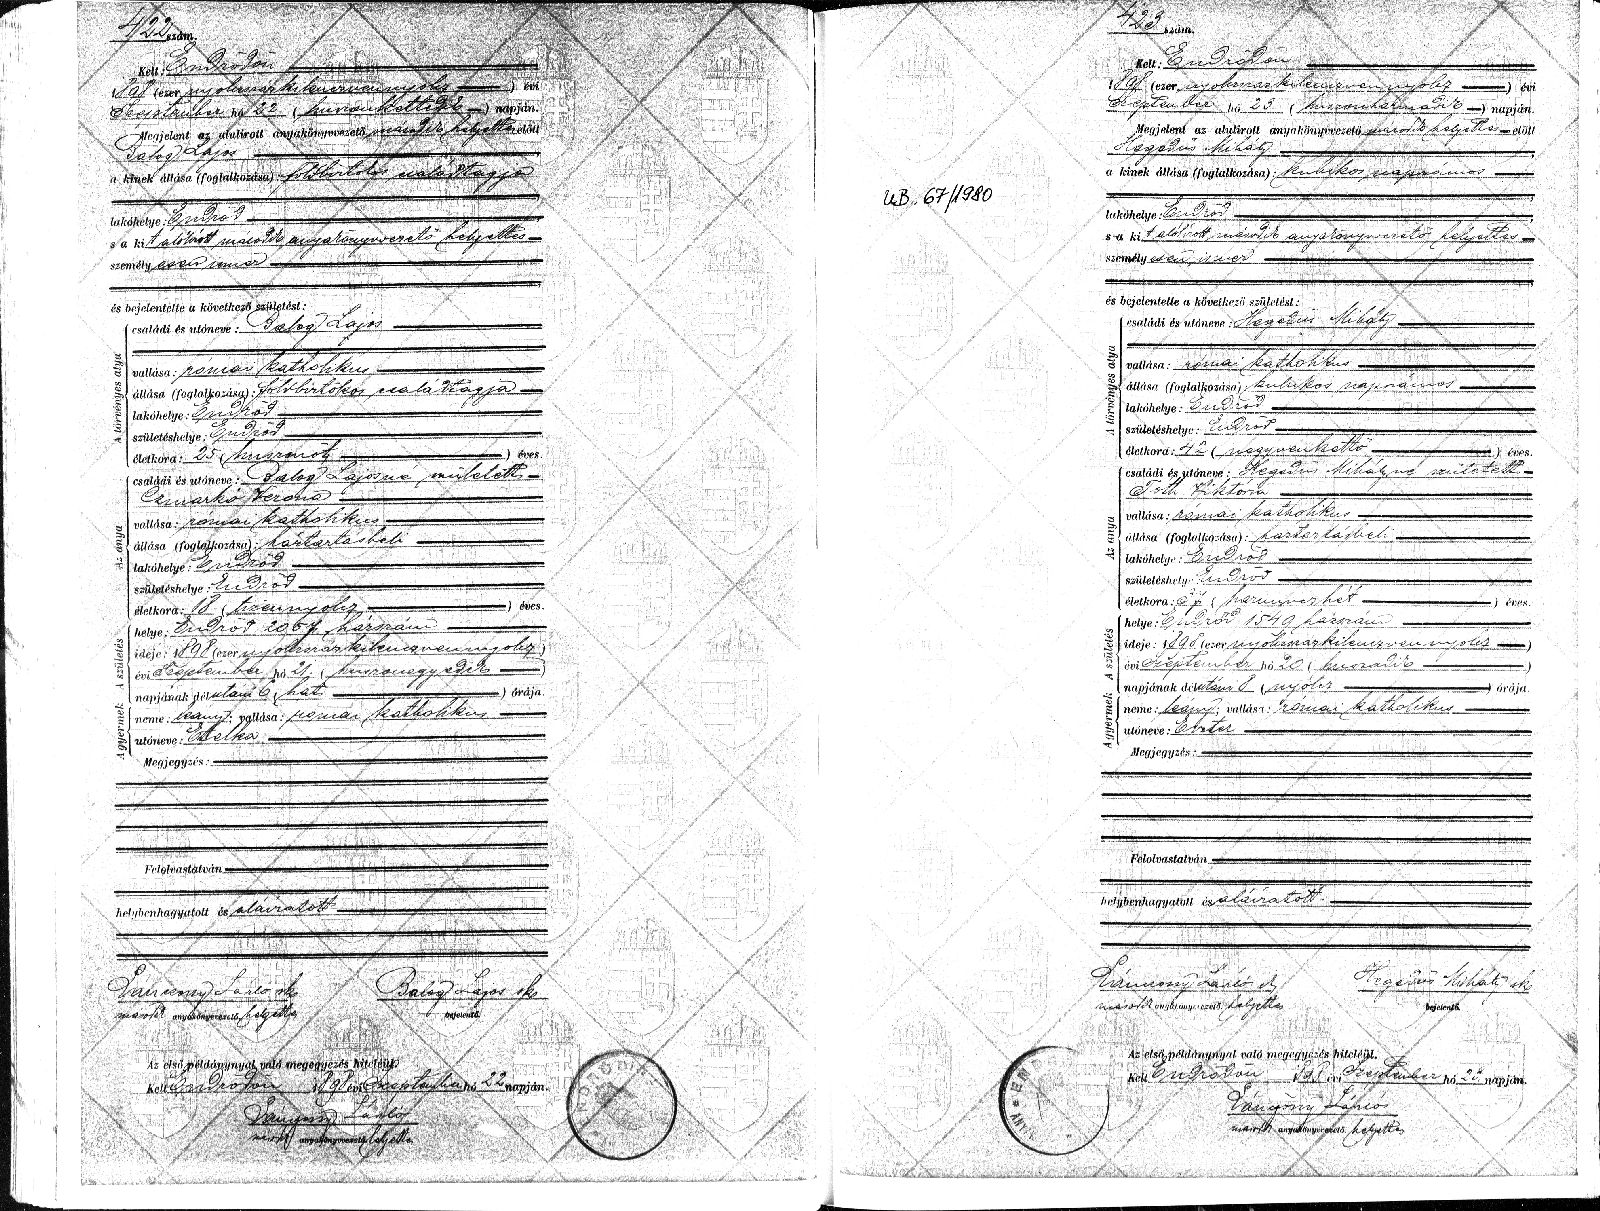 422 szám.
Kelt: Endrődön
1898 (ezer nyolcszázkilencvennyolcz) évi
Szeptember hó 22 (huszonkettedik) napján.
Megjelent az alulirott anyakönyvvezető második helyettes előtt
Balog Lajos
a kinek állása (foglalkozása): földbirtokos családtagja
lakóhelye: Endrőd
s a kit alólirott második anyakönyvvezető helyettes
személyesen ismer
és bejelentette a következő születést:
A törvényes atya
családi és utóneve: Balog Lajos
vallása: római katholikus
állása (foglalkozása): földbirtokos családtagja
lakóhelye: Endrőd
születéshelye: Endrőd
életkora: 25 (huszonöt) éves.
Az anya
családi és utóneve: Balog Lajosné született
Czmarkó Verona
vallása: római katholikus
állása (foglalkozása): háztartásbeli
lakóhelye: Endrőd
születéshelye: Endrőd
életkora: 18 (tizennyolcz) éves.
A születés
helye: Endrőd 2067 házszám
ideje: 1898 (ezer nyolcszázkilencvennyolcz)
évi szeptember hó 21 (huszonegyedik)
napjának délutáni 6 (hat) órája.
A gyermek
neme: leány; vallása: római katholikus
utóneve: Etelka
Megjegyzés:
Felolvastatván
helybenhagyatott és aláiratott
Ványony László sk Balog Lajos sk
második anyakönyvvezető helyettes bejelentő.
Az első példánynyal való megegyezés hiteléül.
Kelt Endrődön 1898 évi szeptember hó 22 napján.
László
második anyakönyvvezető helyettes
UB. 67/1980
423 szám.
Kelt: Endrődön
1898 (ezer nyolcszázkilencvennyolcz) évi
Szeptember hó 23 (huszonharmadik) napján.
Megjelent az alulirott anyakönyvvezető második helyettes előtt
Hegedüs Mihály
a kinek állása (foglalkozása): kubikos napszámos
lakóhelye: Endrőd
s a kit alólirott második anyakönyvvezető helyettes
személyesen ismer
és bejelentette a következő születést:
A törvényes atya
családi és utóneve: Hegedüs Mihály
vallása: római katholikus
állása (foglalkozása): kubikos napszámos
lakóhelye: Endrőd
születéshelye: Endrőd
életkora: 42 (negyvenkettő) éves.
Az anya
családi és utóneve: Hegedüs Mihályné született
Tóth Viktória
vallása: római katholikus
állása (foglalkozása): háztartásbeli
lakóhelye: Endrőd
születéshely: Endrőd
életkora: 37 (harminczhét) éves.
A születés
helye: Endrőd 1549 házszám
ideje: 1898 (ezer nyolcszázkilencvennyolcz)
évi szeptember hó 20 (huszadik)
napjának délutáni 8 (nyolcz) órája.
A gyermek
neme: leány; vallása: római katholikus
utóneve: Eszter
Megjegyzés:
Felolvastatván
helybenhagyatott és aláiratott
László Hegedüs Mihály sk
második anyakönyvvezető helyettes bejelentő.
Az első példánynyal való megegyezés hiteléül.
Kelt Endrődön 1898 évi Szeptember hó 23 napján.
László
második anyakönyvvezető helyettes